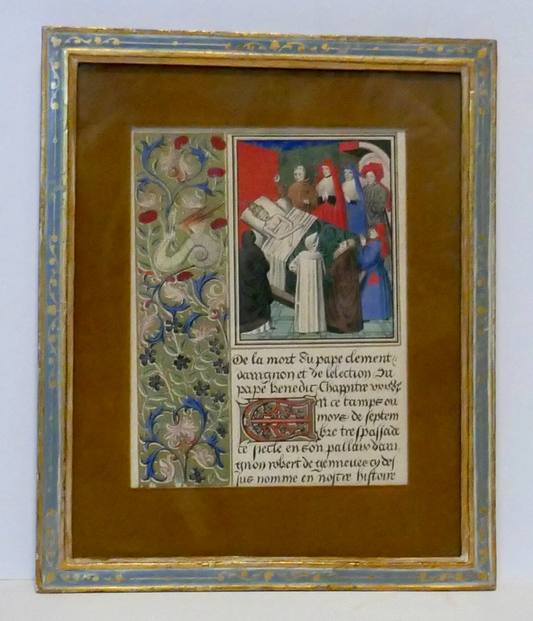 De la mort du pape clement
dauignon et de lelection du
pape benedic Chappitre
En ce temps ou
moys de septem
bre trespassa de
ce siecle en son pallais daui
gnon robert de genneues cy des
sus nomme en nostre histoire